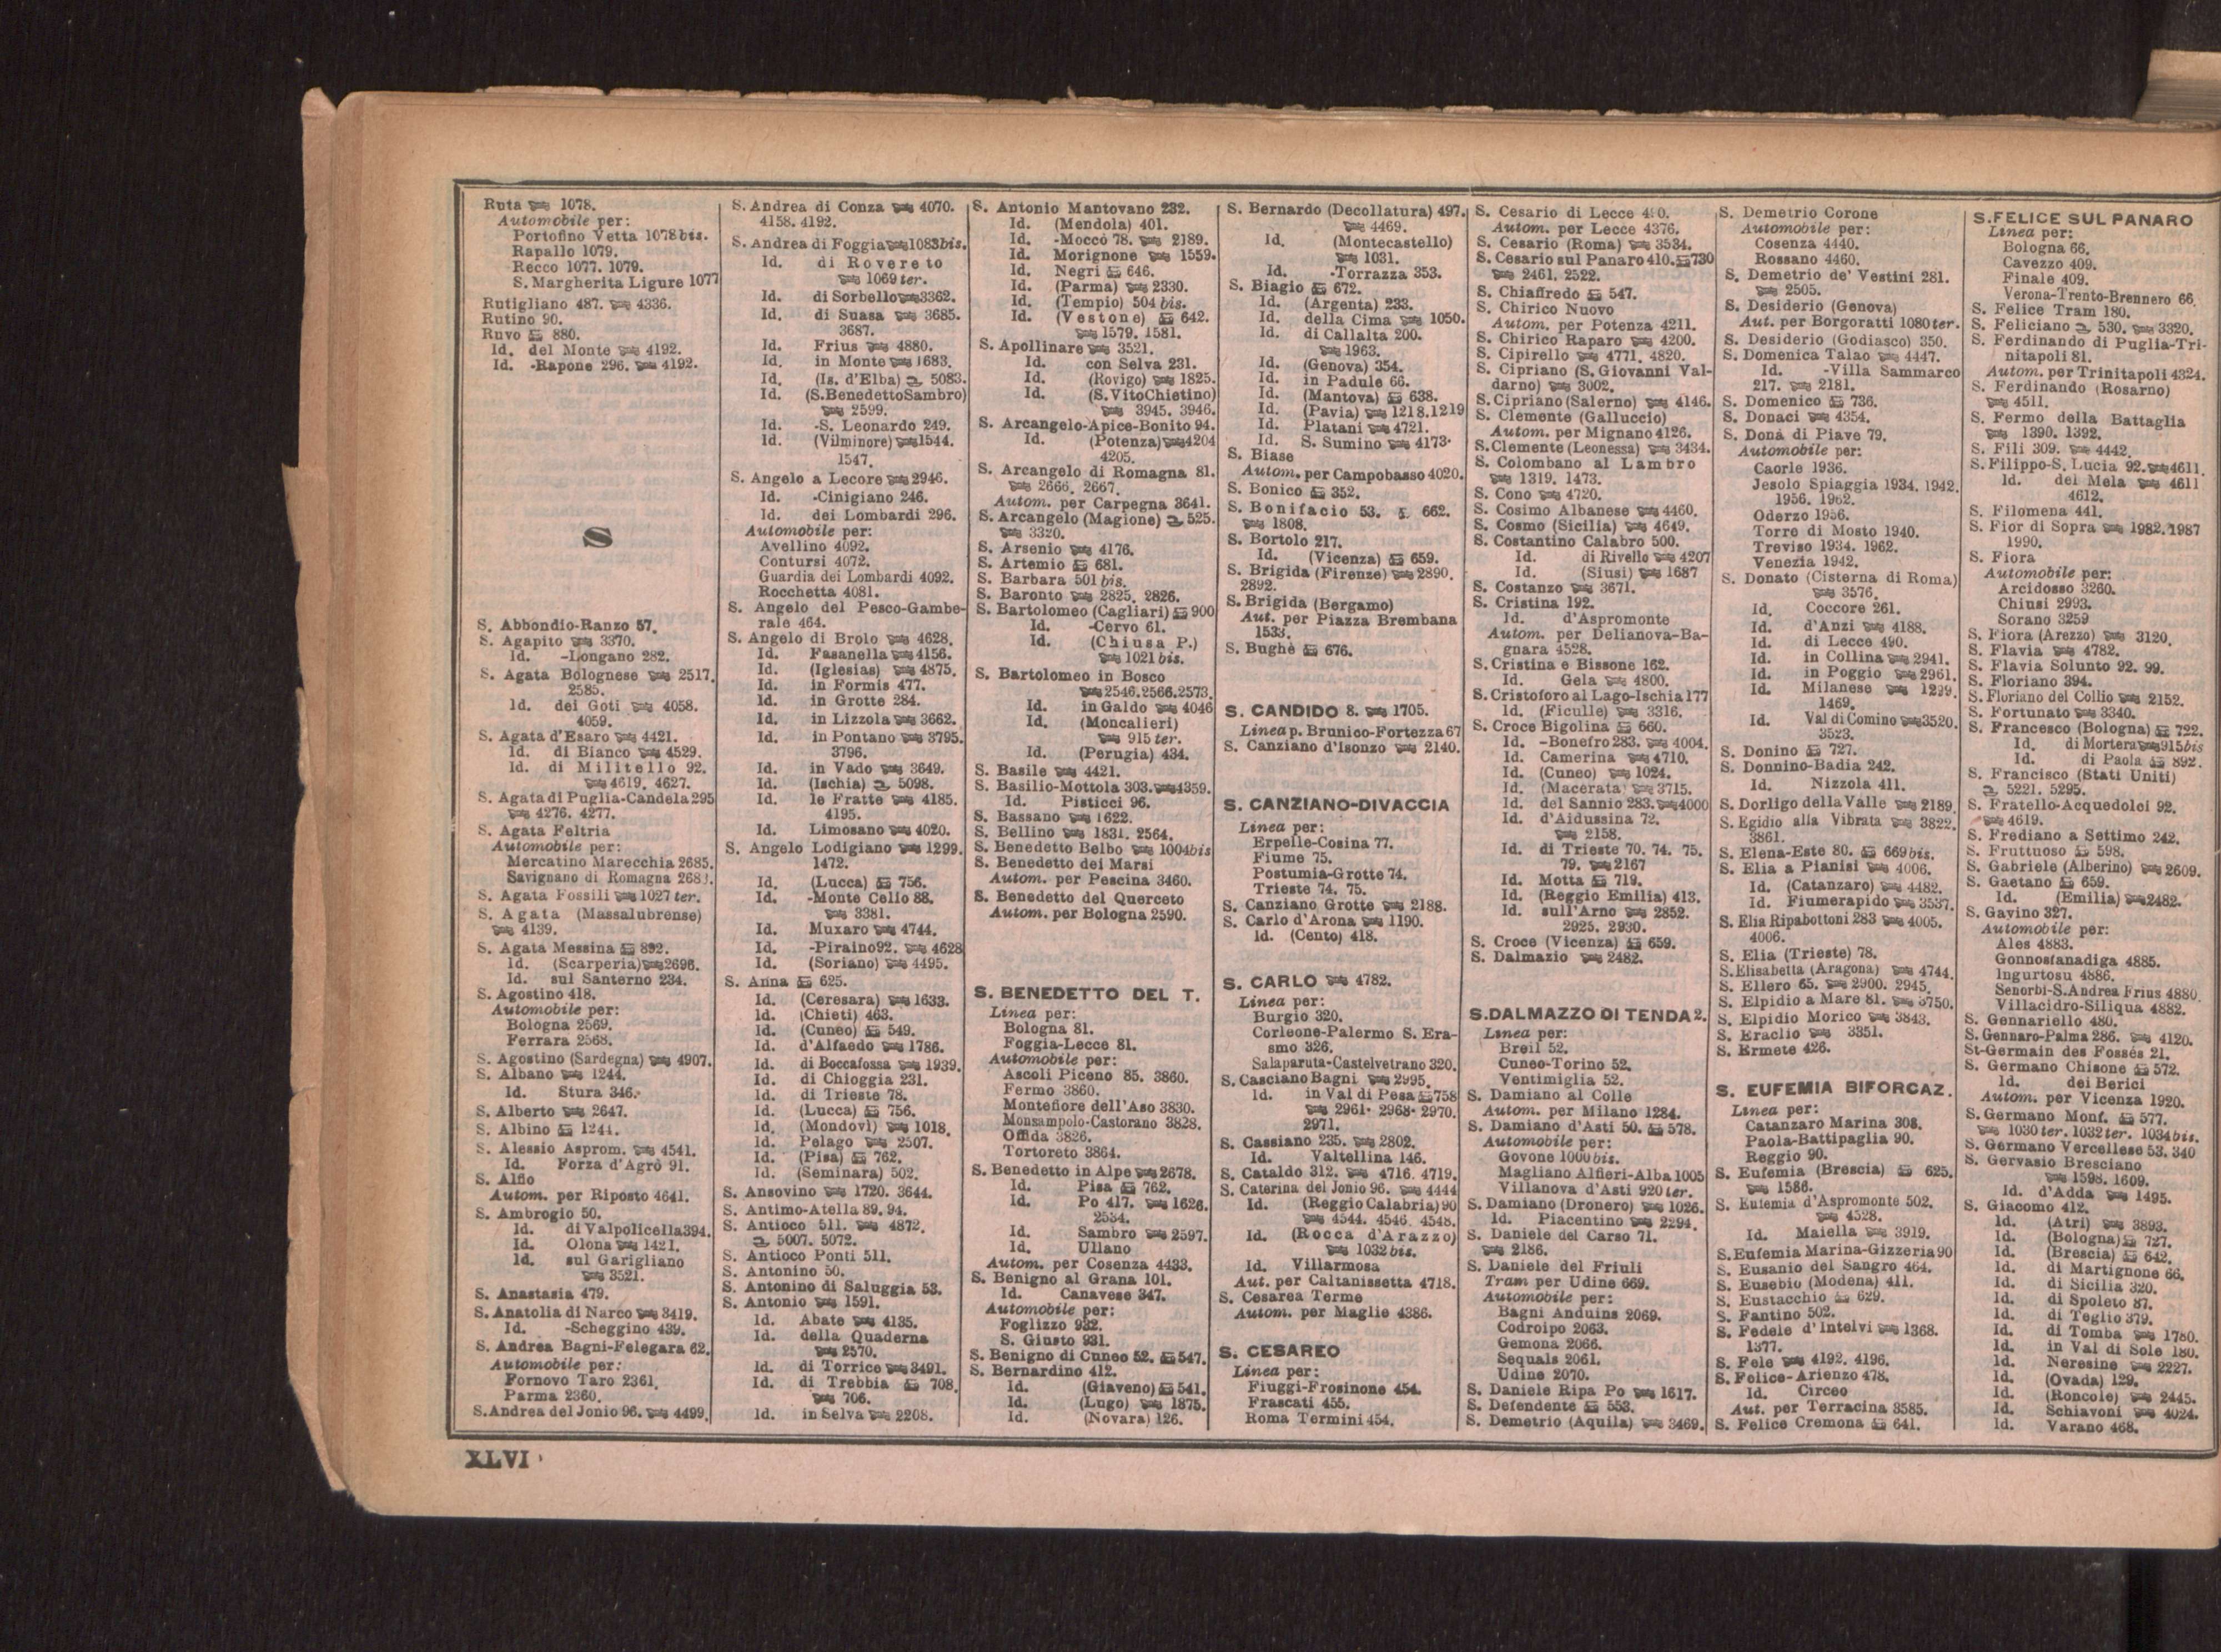 Ruta 1078.
Automobile per:
Portofino Vetta 1078bis.
Rapallo 1079.
Recco 1077. 1079.
S. Margherita Ligure 1077
Rutigliano 487. 4336.
Rutino 90.
Ruvo 880.
Id. del Monte 4192.
Id. -Rapone 296. 4192.
S
S. Abbondio-Ranzo 57.
S. Agapito 3370.
Id. -Longano 282.
S. Agata Bolognese 2517.
2585.
Id. dei Goti 4058.
4059.
S. Agata d'Esaro 4421.
Id. di Bianco 4529.
Id. di Militello 92.
4619. 4627.
S. Agata di Puglia-Candela 295
4276. 4277.
S. Agata Feltria
Automobile per:
Mercatino Marecchia 2685.
Savignano di Romagna
S. Agata Fossili 1027 ter.
S. Agata (Massalubrense)
4139.
S. Agata Messina 892.
Id. (Scarperia) 2696.
Id. sul Santerno 234.
S. Agostino 418.
Automobile per:
Bologna 2569.
Ferrara 2568.
S. Agostino (Sardegna) 4907.
S. Albano 1244.
Id. Stura 346.
S. Alberto 2647.
S. Albino 1244.
S. Alessio Asprom. 4541.
Id. Forza d'Agrò 91.
S. Alfio
Autom. per Riposto 4641.
S. Ambrogio 50.
Id. di Valpolicella 394.
Id. Olona 1421.
Id. sul Garigliano
3521.
S. Anastasia 479.
S. Anatolia di Narco 3419.
Id. -Scheggino 439.
S. Andrea Bagni-Felegara 62.
Automobile per:
Fornovo Taro 2361.
Parma 2360.
S. Andrea del Jonio 96. 4499.
S. Andrea di Conza 4070.
4158. 4192.
S. Andrea di Foggia 1083bis.
Id. di Rovereto
1069 ter.
Id. di Sorbello 3362.
Id. di Suasa 3685.
3687.
Id. Frius 4880.
Id. in Monte 1683.
Id. (Is. d'Elba) 5083.
Id. (S. Benedetto Sambro)
2599.
Id. -S. Leonardo 249.
Id. (Vilminore) 1544.
1547.
S. Angelo a Lecore 2946.
Id. -Cinigiano 246.
Id. dei Lombardi 296.
Automobile per:
Avellino 4092.
Contursi 4072.
Guardia dei Lombardi 4092.
Rocchetta 4081.
S. Angelo del Pesco-Gambe-
rale 464.
S. Angelo di Brolo 4628.
Id. Fasanella 4156.
Id. (Iglesias) 4875.
Id. in Formis 477.
Id. in Grotte 284.
Id. in Lizzola 3662.
Id. in Pontano 3795.
3796.
Id. in Vado 3649.
Id. (Ischia) 5098.
Id. le Fratte 4185.
4195.
Id. Limosano 4020.
S. Angelo Lodigiano 1299.
1472.
Id. (Lucca) 756.
Id. -Monte Cello 88.
3381.
Id. Muxaro 4744.
Id. -Piraino 92. 4628
Id. (Soriano) 4495.
S. Anna 625.
Id. (Ceresara) 1633.
Id. (Chieti) 463.
Id. (Cuneo) 549.
Id. d'Alfaedo 1786.
Id. di Boccafossa 1939.
Id. di Chioggia 231.
Id. di Trieste 78.
Id. (Lucca) 756.
Id. (Mondovì) 1018.
Id. Pelago 2507.
Id. (Pisa) 762.
Id. (Seminara) 502.
S. Ansovino 1720. 3644.
S. Antimo-Atella 89. 94.
S. Antioco 511. 4872.
5007. 5072.
S. Antioco Ponti 511.
S. Antonino 50.
S. Antonino di Saluggia 53.
S. Antonio 1591.
Id. Abate 4135.
Id. della Quaderna
2570.
Id. di Torrice 3491.
Id. di Trebbia 708.
706.
Id. in Selva 2208.
S. Antonio Mantovano 232.
Id. (Mendola) 401.
Id. -Moccò 78. 2189.
Id. Morignone 1559.
Id. Negri 646.
Id. (Parma) 2330.
Id. (Tempio) 504 bis.
Id. (Vestone) 642.
1579. 1581.
S. Apollinare 3521.
Id. con Selva 231.
Id. (Rovigo) 1825.
Id. (S. Vito Chietino)
3945. 3946.
S. Arcangelo-Apice-Bonito 94.
Id. (Potenza) 4204
4205.
S. Arcangelo di Romagna 81.
2666. 2667.
Autom. per Carpegna 3641.
S. Arcangelo (Magione) 525.
3320.
S. Arsenio 4176.
S. Artemio 681.
S. Barbara 501 bis.
S. Baronto 2825. 2826.
S. Bartolomeo (Cagliari) 900
Id. -Cervo 61.
Id. (Chiusa P.)
1021 bis.
S. Bartolomeo in Bosco
2546. 2566. 2573.
Id. in Galdo 4046
Id. (Moncalieri)
915 ter.
Id. (Perugia) 434.
S. Basile 4421.
S. Basilio-Mottola 303. 4359.
Id. Pisticci 96.
S. Bassano 1622.
S. Bellino 1831. 2564.
S. Benedetto Belbo 1004bis
S. Benedetto dei Marsi
Autom. per Pescina 3460.
S. Benedetto del Querceto
Autom. per Bologna 2590.
S. BENEDETTO DEL T.
Linea per:
Bologna 81.
Foggia-Lecce 81.
Automobile per:
Ascoli Piceno 85. 3860.
Fermo 3860.
Montefiore dell'Aso 3830.
Monsampolo-Castorano 3828.
Offida 3826.
Tortoreto 3864.
S. Benedetto in Alpe 2678.
Id. Pisa 762.
Id. Po 417. 1626.
2534.
Id. Sambro 2597.
Id. Ullano
Autom. per Cosenza 4433.
S. Benigno al Grana 101.
Id. Canavese 347.
Automobile per:
Foglizzo 932.
S. Giusto 931.
S. Benigno di Cuneo 52. 547.
S. Bernardino 412.
Id. (Giaveno) 541.
Id. (Lugo) 1875.
Id. (Novara) 126.
S. Bernardo (Decollatura) 497.
4469.
Id. (Montecastello)
1031.
Id. -Torrazza 353.
S. Biagio 672.
Id. (Argenta) 233.
Id. della Cima 1050.
Id. di Callalta 200.
1963.
Id. (Genova) 354.
Id. in Padule 66.
Id. (Mantova) 638.
Id. (Pavia) 1218. 1219
Id. Platani 4721.
Id. S. Sumino 4173.
S. Biase
Autom. per Campobasso 4020.
S. Bonico 352.
S. Bonifacio 53. 662.
1808.
S. Bortolo 217.
Id. (Vicenza) 659.
S. Brigida (Firenze) 2890.
2892.
S. Brigida (Bergamo)
Aut. per Piazza Brembana
1533.
S. Bughè 676.
S. CANDIDO 8. 1705.
Linea p. Brunico-Fortezza 67
S. Canziano d'Isonzo 2140.
S. CANZIANO-DIVACCIA
Linea per:
Erpelle-Cosina 77.
Fiume 75.
Postumia-Grotte 74.
Trieste 74. 75.
S. Canziano Grotte 2188.
S. Carlo d'Arona 1190.
Id. (Cento) 418.
S. CARLO 4782.
Linea per:
Burgio 320.
Corleone-Palermo S. Era-
smo 326.
Salaparuta-Castelvetrano 320.
S. Casciano Bagni 2995.
Id. in Val di Pesa 758
2961. 2968. 2970.
2971.
S. Cassiano 235. 2802.
Id. Valtellina 146.
S. Cataldo 312. 4716. 4719.
S. Caterina del Jonio 96. 4444
Id. (Reggio Calabria) 90
4544. 4546. 4548.
Id. (Rocca d'Arazzo)
1032bis.
Id. Villarmosa
Aut. per Caltanissetta 4718.
S. Cesarea Terme
Autom. per Maglie 4386.
S. CESAREO
Linea per:
Fiuggi-Frosinone 454.
Frascati 455.
Roma Termini 454.
S. Cesario di Lecce
Autom. per Lecce 4376.
S. Cesario (Roma) 3534.
S. Cesario sul Panaro 410. 730
2461. 2522.
S. Chiaffredo 547.
S. Chirico Nuovo
Autom. per Potenza 4211.
S. Chirico Raparo 4200.
S. Cipirello 4771. 4820.
S. Cipriano (S. Giovanni Val-
darno) 3002.
S. Cipriano (Salerno) 4146.
S. Clemente (Galluccio)
Autom. per Mignano 4126.
S. Clemente (Leonessa) 3434.
S. Colombano al Lambro
1319. 1473.
S. Cono 4720.
S. Cosimo Albanese 4460.
S. Cosmo (Sicilia) 4649.
S. Costantino Calabro 500.
Id. di Rivello 4207
Id. (Siusi) 1687
S. Costanzo 3671.
S. Cristina 192.
Id. d'Aspromonte
Autom. per Delianova-Ba-
gnara 4528.
S. Cristina e Bissone 162.
Id. Gela 4800.
S. Cristoforo al Lago-Ischia 177
Id. (Ficulle) 3316.
S. Croce Bigolina 660.
Id. -Bonefro 283. 4004.
Id. Camerina 4710.
Id. (Cuneo) 1024.
Id. (Macerata) 3715.
Id. del Sannio 283. 4000
Id. d'Aidussina 72.
2158.
Id. di Trieste 70. 74. 75.
79. 2167
Id. Motta 719.
Id. (Reggio Emilia) 413.
Id. sull'Arno 2852.
2925. 2930.
S. Croce (Vicenza) 659.
S. Dalmazio 2482.
S. DALMAZZO DI TENDA 2.
Linea per:
Breil 52.
Cuneo-Torino 52.
Ventimiglia 52.
S. Damiano al Colle
Autom. per Milano 1284.
S. Damiano d'Asti 50. 578.
Automobile per:
Govone 1000bis.
Magliano Alfieri-Alba 1005
Villanova d'Asti 920 ter.
S. Damiano (Dronero) 1026.
Id. Piacentino 2294.
S. Daniele del Carso 71.
2186.
S. Daniele del Friuli
Tram per Udine 669.
Automobile per:
Bagni Anduins 2069.
Codroipo 2063.
Gemona 2066.
Sequals 2061.
Udine 2070.
S. Daniele Ripa Po 1617.
S. Defendente 553.
S. Demetrio (Aquila) 3469.
S. Demetrio Corone
Automobile per:
Cosenza 4440.
Rossano 4460.
S. Demetrio de' Vestini 281.
2505.
S. Desiderio (Genova)
Aut. per Borgoratti 1080 ter.
S. Desiderio (Godiasco) 350.
S. Domenica Talao 4447.
Id. -Villa Sammarco
217. 2181.
S. Domenico 736.
S. Donaci 4354.
S. Donà di Piave 79.
Automobile per:
Caorle 1936.
Jesolo Spiaggia 1934. 1942.
1956. 1962.
Oderzo 1956.
Torre di Mosto 1940.
Treviso 1934. 1962.
Venezia 1942.
S. Donato (Cisterna di Roma)
3576.
Id. Coccore 261.
Id. d'Anzi 4188.
Id. di Lecce 490.
Id. in Collina 2941.
Id. in Poggio 2961.
Id. Milanese 1299.
1469.
Id. Val di Comino 3520.
3523.
S. Donino 727.
S. Donnino-Badia 242.
Id. Nizzola 411.
S. Dorligo della Valle 2189.
S. Egidio alla Vibrata 3822.
3861.
S. Elena-Este 80. 669 bis.
S. Elia a Pianisi 4006.
Id. (Catanzaro) 4482.
Id. Fiumerapido 3537.
S. Elia Ripabottoni 283 4005.
4006.
S. Elia (Trieste) 78.
S. Elisabetta (Aragona) 4744.
S. Ellero 65. 2900. 2945.
S. Elpidio a Mare 81. 3750.
S. Elpidio Morico 3843.
S. Eraclio 3351.
S. Ermete 426.
S. EUFEMIA BIFORCAZ.
Linea per:
Catanzaro Marina 308.
Paola-Battipaglia 90.
Reggio 90.
S. Eufemia (Brescia) 625.
1586.
S. Eufemia d'Aspromonte 502.
4528.
Id. Maiella 3919.
S. Eufemia Marina-Gizzeria 90
S. Eusanio del Sangro 464.
S. Eusebio (Modena) 411.
S. Eustacchio 629.
S. Fantino 502.
S. Fedele d'Intelvi 1368.
1377.
S. Fele 4192. 4196.
S. Felice-Arienzo 478.
Id. Circeo
Aut. per Terracina 3585.
S. Felice Cremona 641.
S. FELICE SUL PANARO
Linea per:
Bologna 66.
Cavezzo 409.
Finale 409.
Verona-Trento-Brennero 66.
S. Felice Tram 180.
S. Feliciano 530. 3320.
S. Ferdinando di Puglia-Tri-
nitapoli 81.
Autom. per Trinitapoli 4324.
S. Ferdinando (Rosarno)
4511.
S. Fermo della Battaglia
1390. 1392.
S. Fili 309. 4442.
S. Filippo-S. Lucia 92. 4611.
Id. del Mela 4611
4612.
S. Filomena 441.
S. Fior di Sopra 1982. 1987
1990.
S. Fiora
Automobile per:
Arcidosso 3260.
Chiusi 2993.
Sorano 3259
S. Fiora (Arezzo) 3120.
S. Flavia 4782.
S. Flavia Solunto 92. 99.
S. Floriano 394.
S. Floriano del Collio 2152.
S. Fortunato 3340.
S. Francesco (Bologna) 722.
Id. di Mortera 915bis
Id. di Paola 892.
S. Francisco (Stati Uniti)
5221. 5295.
S. Fratello-Acquedolci 92.
4619.
S. Frediano a Settimo 242.
S. Fruttuoso 598.
S. Gabriele (Alberino) 2609.
S. Gaetano 659.
Id. (Emilia) 2482.
S. Gavino 327.
Automobile per:
Ales 4883.
Gonnosfanadiga 4885.
Ingurtosu 4886.
Senorbi-S. Andrea Frius 4880.
Villacidro-Siliqua 4882.
S. Gennariello 480.
S. Gennaro-Palma 286. 4120.
St-Germain des Fossés 21.
S. Germano Chisone 572.
Id. dei Berici
Autom. per Vicenza 1920.
S. Germano Monf. 577.
1030 ter. 1032 ter. 1034 bis.
S. Germano Vercellese 53. 340
S. Gervasio Bresciano
1598. 1609.
Id. d'Adda 1495.
S. Giacomo 412.
Id. (Atri) 3893.
Id. (Bologna) 727.
Id. (Brescia) 642.
Id. di Martignone 66.
Id. di Sicilia 320.
Id. di Spoleto 87.
Id. di Teglio 379.
Id. di Tomba 1780.
Id. in Val di Sole 180.
Id. Neresine 2227.
Id. (Ovada) 129.
Id. (Roncole) 2445.
Id. Schiavoni 4024.
Id. Varano 468.
XLVI